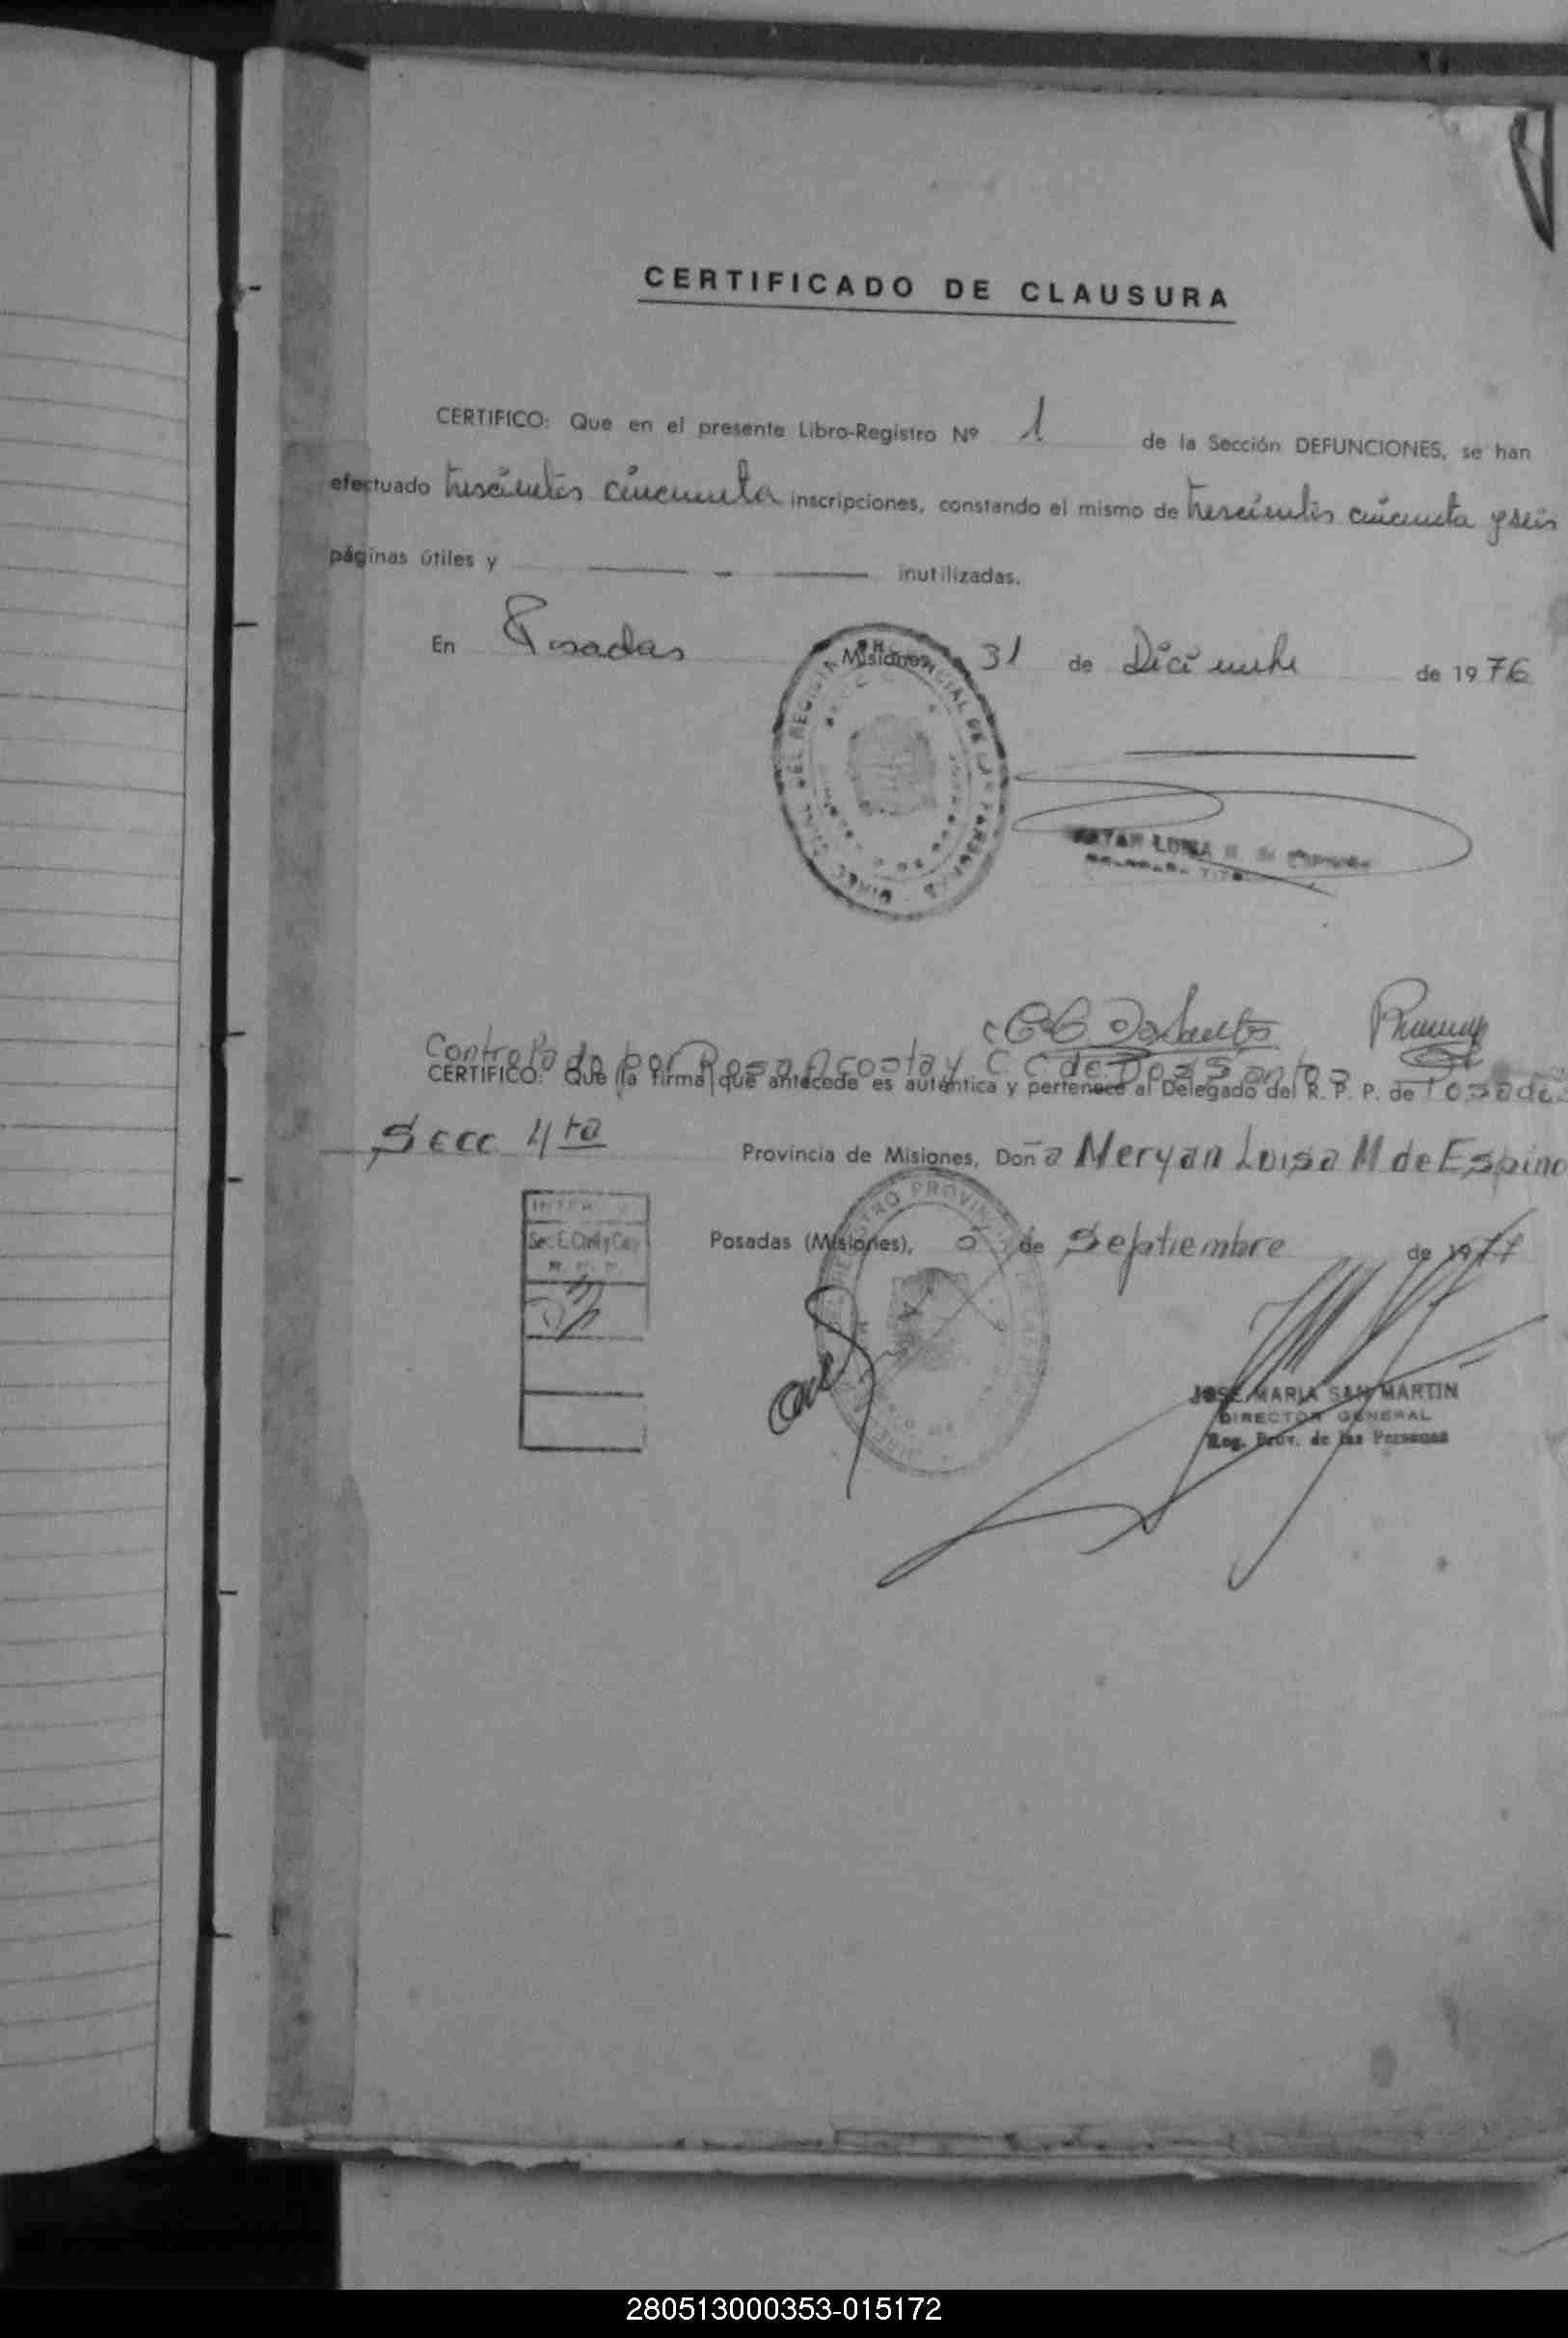 CERTIFICADO DE CLAUSURA
CERTIFICO: Que en el presente Libro-Registro Nº 1 de la Sección DEFUNCIONES, se han
efectuado trescientos cincuenta inscripciones, constando el mismo de trescientos cincuenta y seis
páginas útiles y — - — inutilizadas.
En Posadas Misiones, 31 de Diciembre de 1976
LUISA M. DE
Controlado por Rosa Acosta y C. C de Dos Santos
CERTIFICO: Que la firma que antecede es auténtica y pertenece al Delegado del R. P. P. de Posadas
Secc 4ta Provincia de Misiones, Doña Meryan Luisa M de Espino
Sec. E. Civil y Cap
Posadas (Misiones), de Septiembre de 1977
REGISTRO PROVINCIAL
JOSE MARIA SAN MARTIN
DIRECTOR GENERAL
Reg. Prov. de las Personas
280513000353-015172